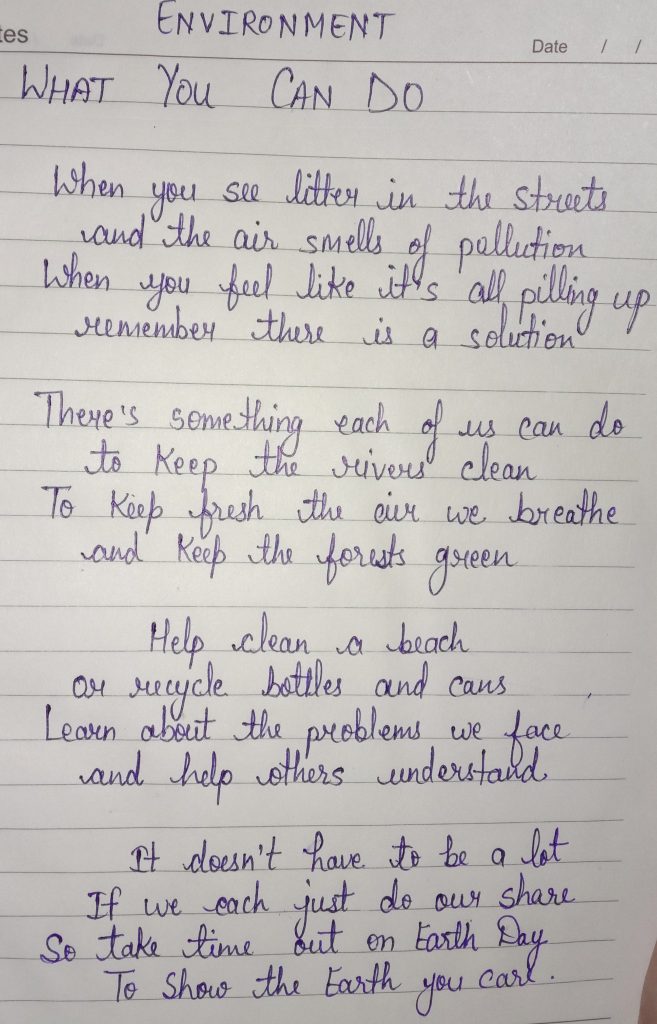 ENVIRONMENT
tes
Date / /
WHAT YOU CAN DO
When you see litter in the streets
and the air smells of pollution
When you feel like it's all pilling up
remember there is a solution
There's something each of us can do
to keep the rivers clean
To keep fresh the air we breathe
and keep the forests green
Help clean a beach
or recycle bottles and cans
Learn about the problems we face
and help others understand
It doesn't have to be a lot
If we each just do our share
So take time out on Earth Day
To Show the Earth you care.